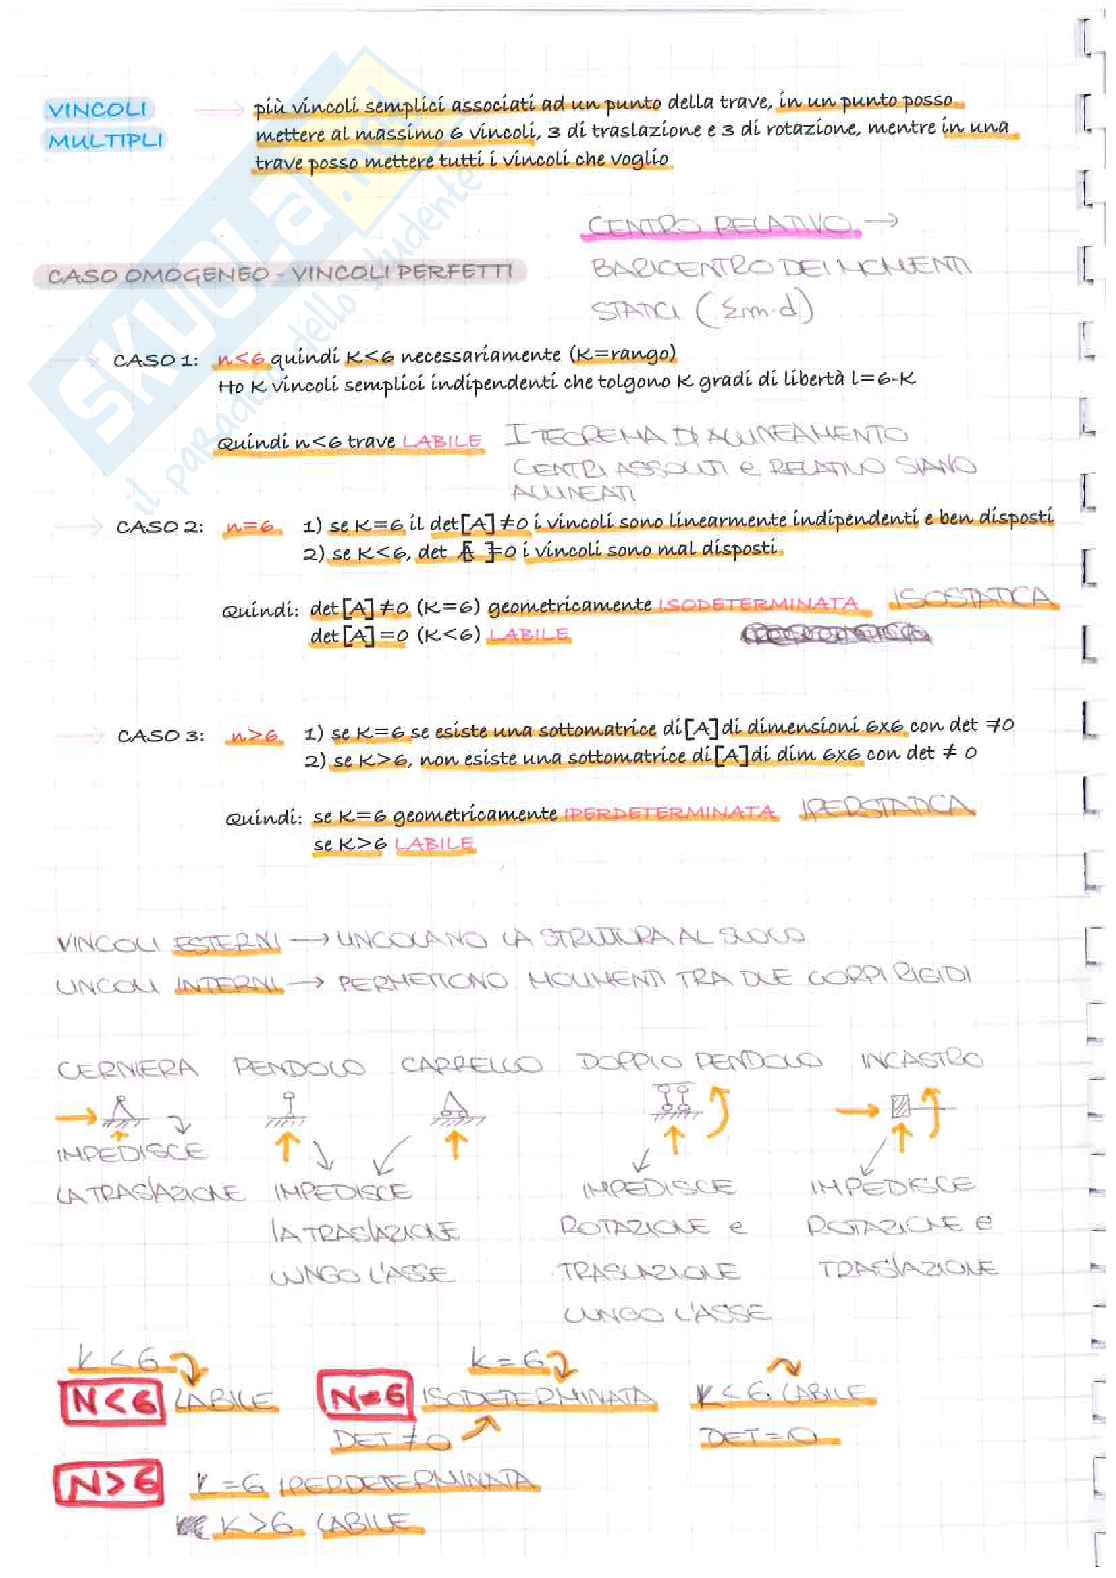 VINCOLI MULTIPLI → più vincoli semplici associati ad un punto della trave, in un punto posso
mettere al massimo 6 vincoli, 3 di traslazione e 3 di rotazione, mentre in una
trave posso mettere tutti i vincoli che voglio
CENTRO RELATIVO →
BARICENTRO DEI MOMENTI
STATICI (Σm·d)
CASO OMOGENEO - VINCOLI PERFETTI
CASO 1: n<6 quindi K<6 necessariamente (K=rango)
Ho K vincoli semplici indipendenti che tolgono K gradi di libertà l=6-K
Quindi n<6 trave LABILE
I TEOREMA DI ALLINEAMENTO
CENTRI ASSOLUTI E RELATIVO SIANO
ALLINEATI
CASO 2: n=6 1) se K=6 il det[A]≠0 i vincoli sono linearmente indipendenti e ben disposti
2) se K<6, det [ ]=0 i vincoli sono mal disposti.
Quindi: det[A]≠0 (K=6) geometricamente ISODETERMINATA ISOSTATICA
det[A]=0 (K<6) LABILE
CASO 3: n>6 1) se K=6 se esiste una sottomatrice di[A]di dimensioni 6x6 con det ≠0
2) se K>6, non esiste una sottomatrice di[A]di dim 6x6 con det ≠ 0
Quindi: se K=6 geometricamente IPERDETERMINATA IPERSTATICA
se K>6 LABILE
VINCOLI ESTERNI → VINCOLANO LA STRUTTURA AL SUOLO
VINCOLI INTERNI → PERMETTONO MOVIMENTI TRA DUE CORPI RIGIDI
CERNIERA PENDOLO CARRELLO DOPPIO PENDOLO INCASTRO
IMPEDISCE
LA TRASLAZIONE
IMPEDISCE
LA TRASLAZIONE
LUNGO L'ASSE
IMPEDISCE
ROTAZIONE e
TRASLAZIONE
LUNGO L'ASSE
IMPEDISCE
ROTAZIONE E
TRASLAZIONE
K<6
N<6 LABILE
K=6
N=6 ISODETERMINATA
DET ≠0
K<6 LABILE
DET=0
N>6 K=6 IPERDETERMINATA
K>6 LABILE
SKUOLA.net
il paradiso dello studente